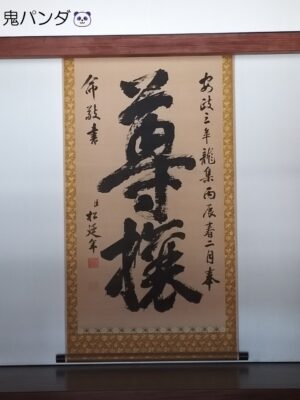 鬼パンダ🐼
安政三年龍集丙辰春二月奉
尊攘
命敬書
臣松延年